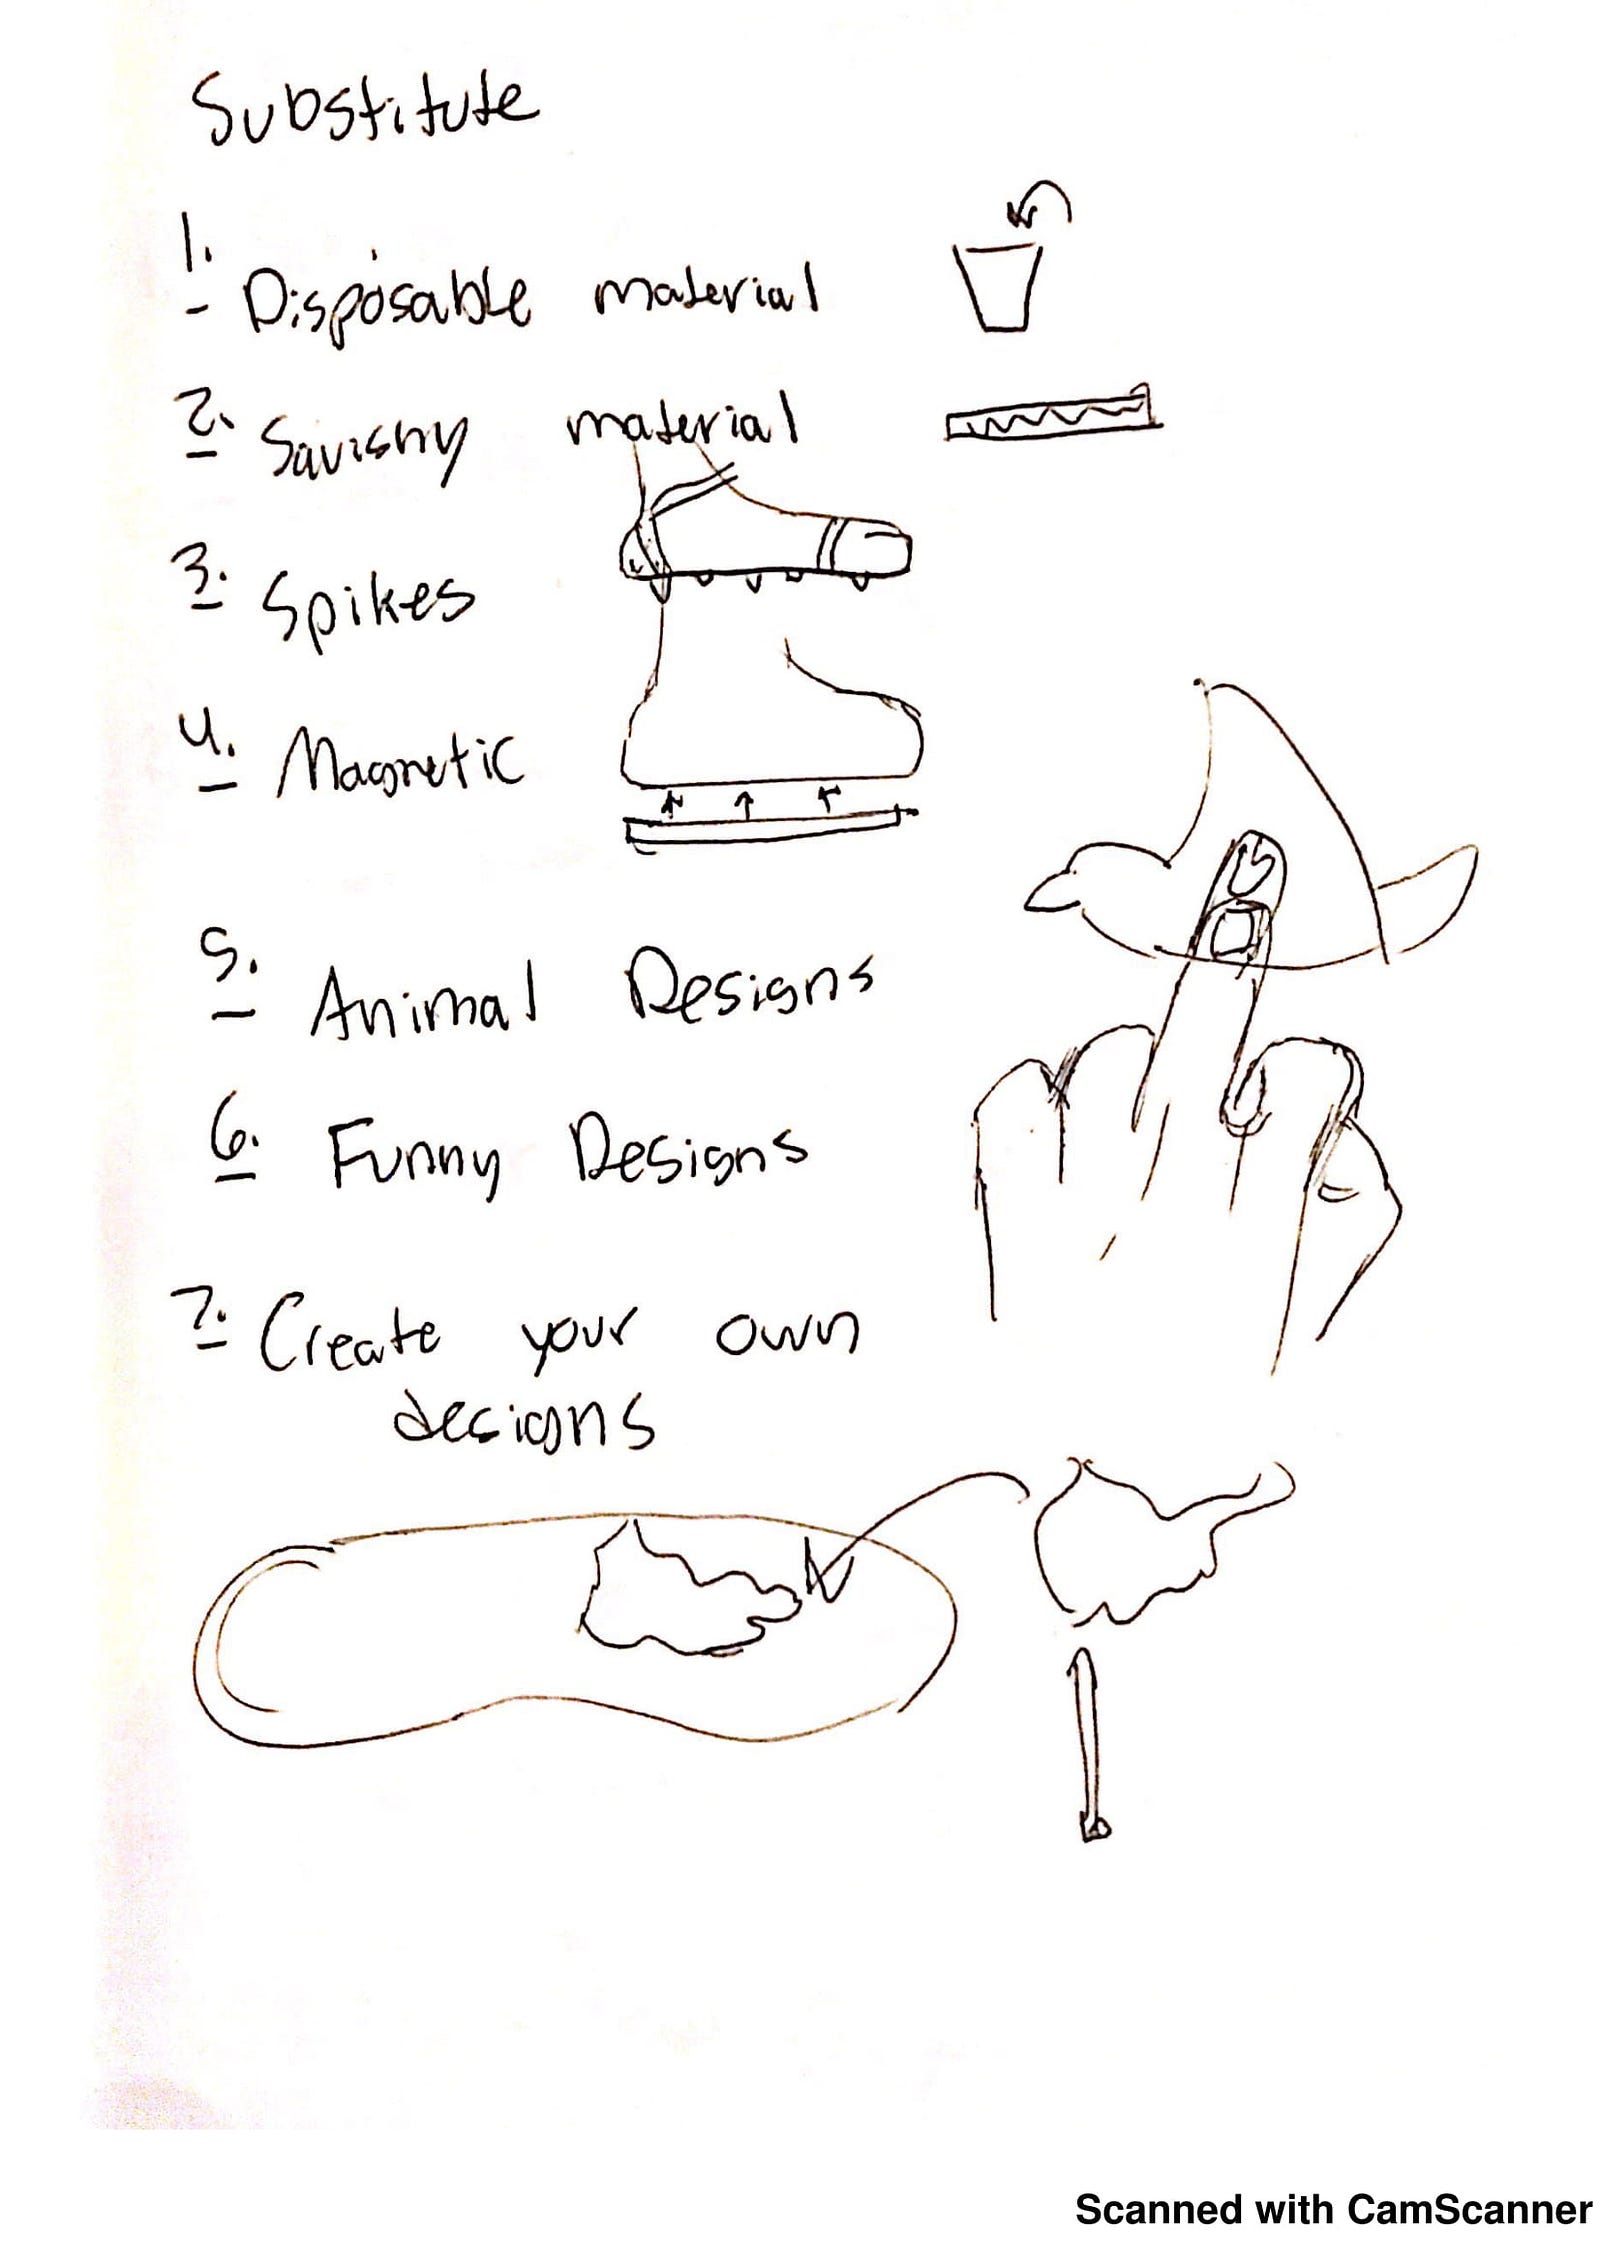 Substitute
1. Disposable material
2. Squishy material
3. Spikes
4. Magnetic
5. Animal Designs
6. Funny Designs
7. Create your own
designs
Scanned with CamScanner